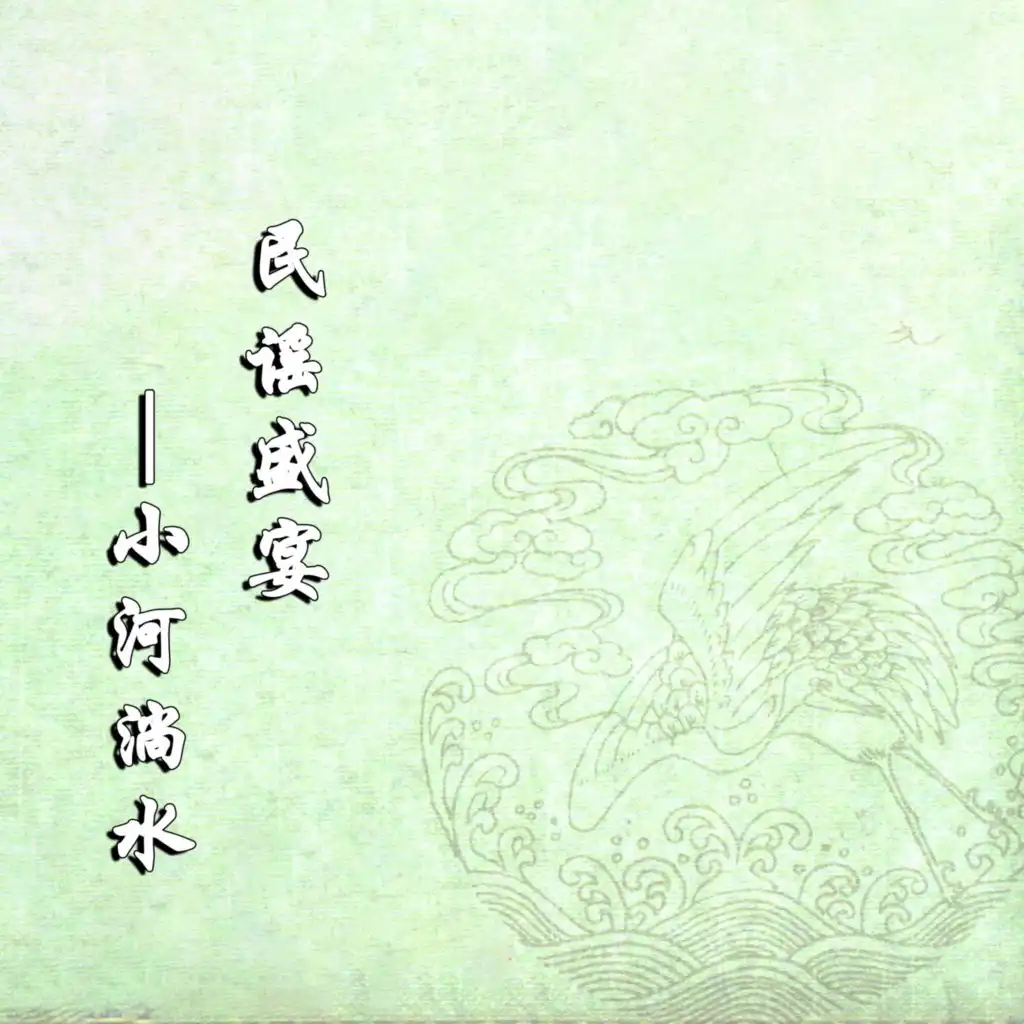 民谣盛宴
—小河淌水